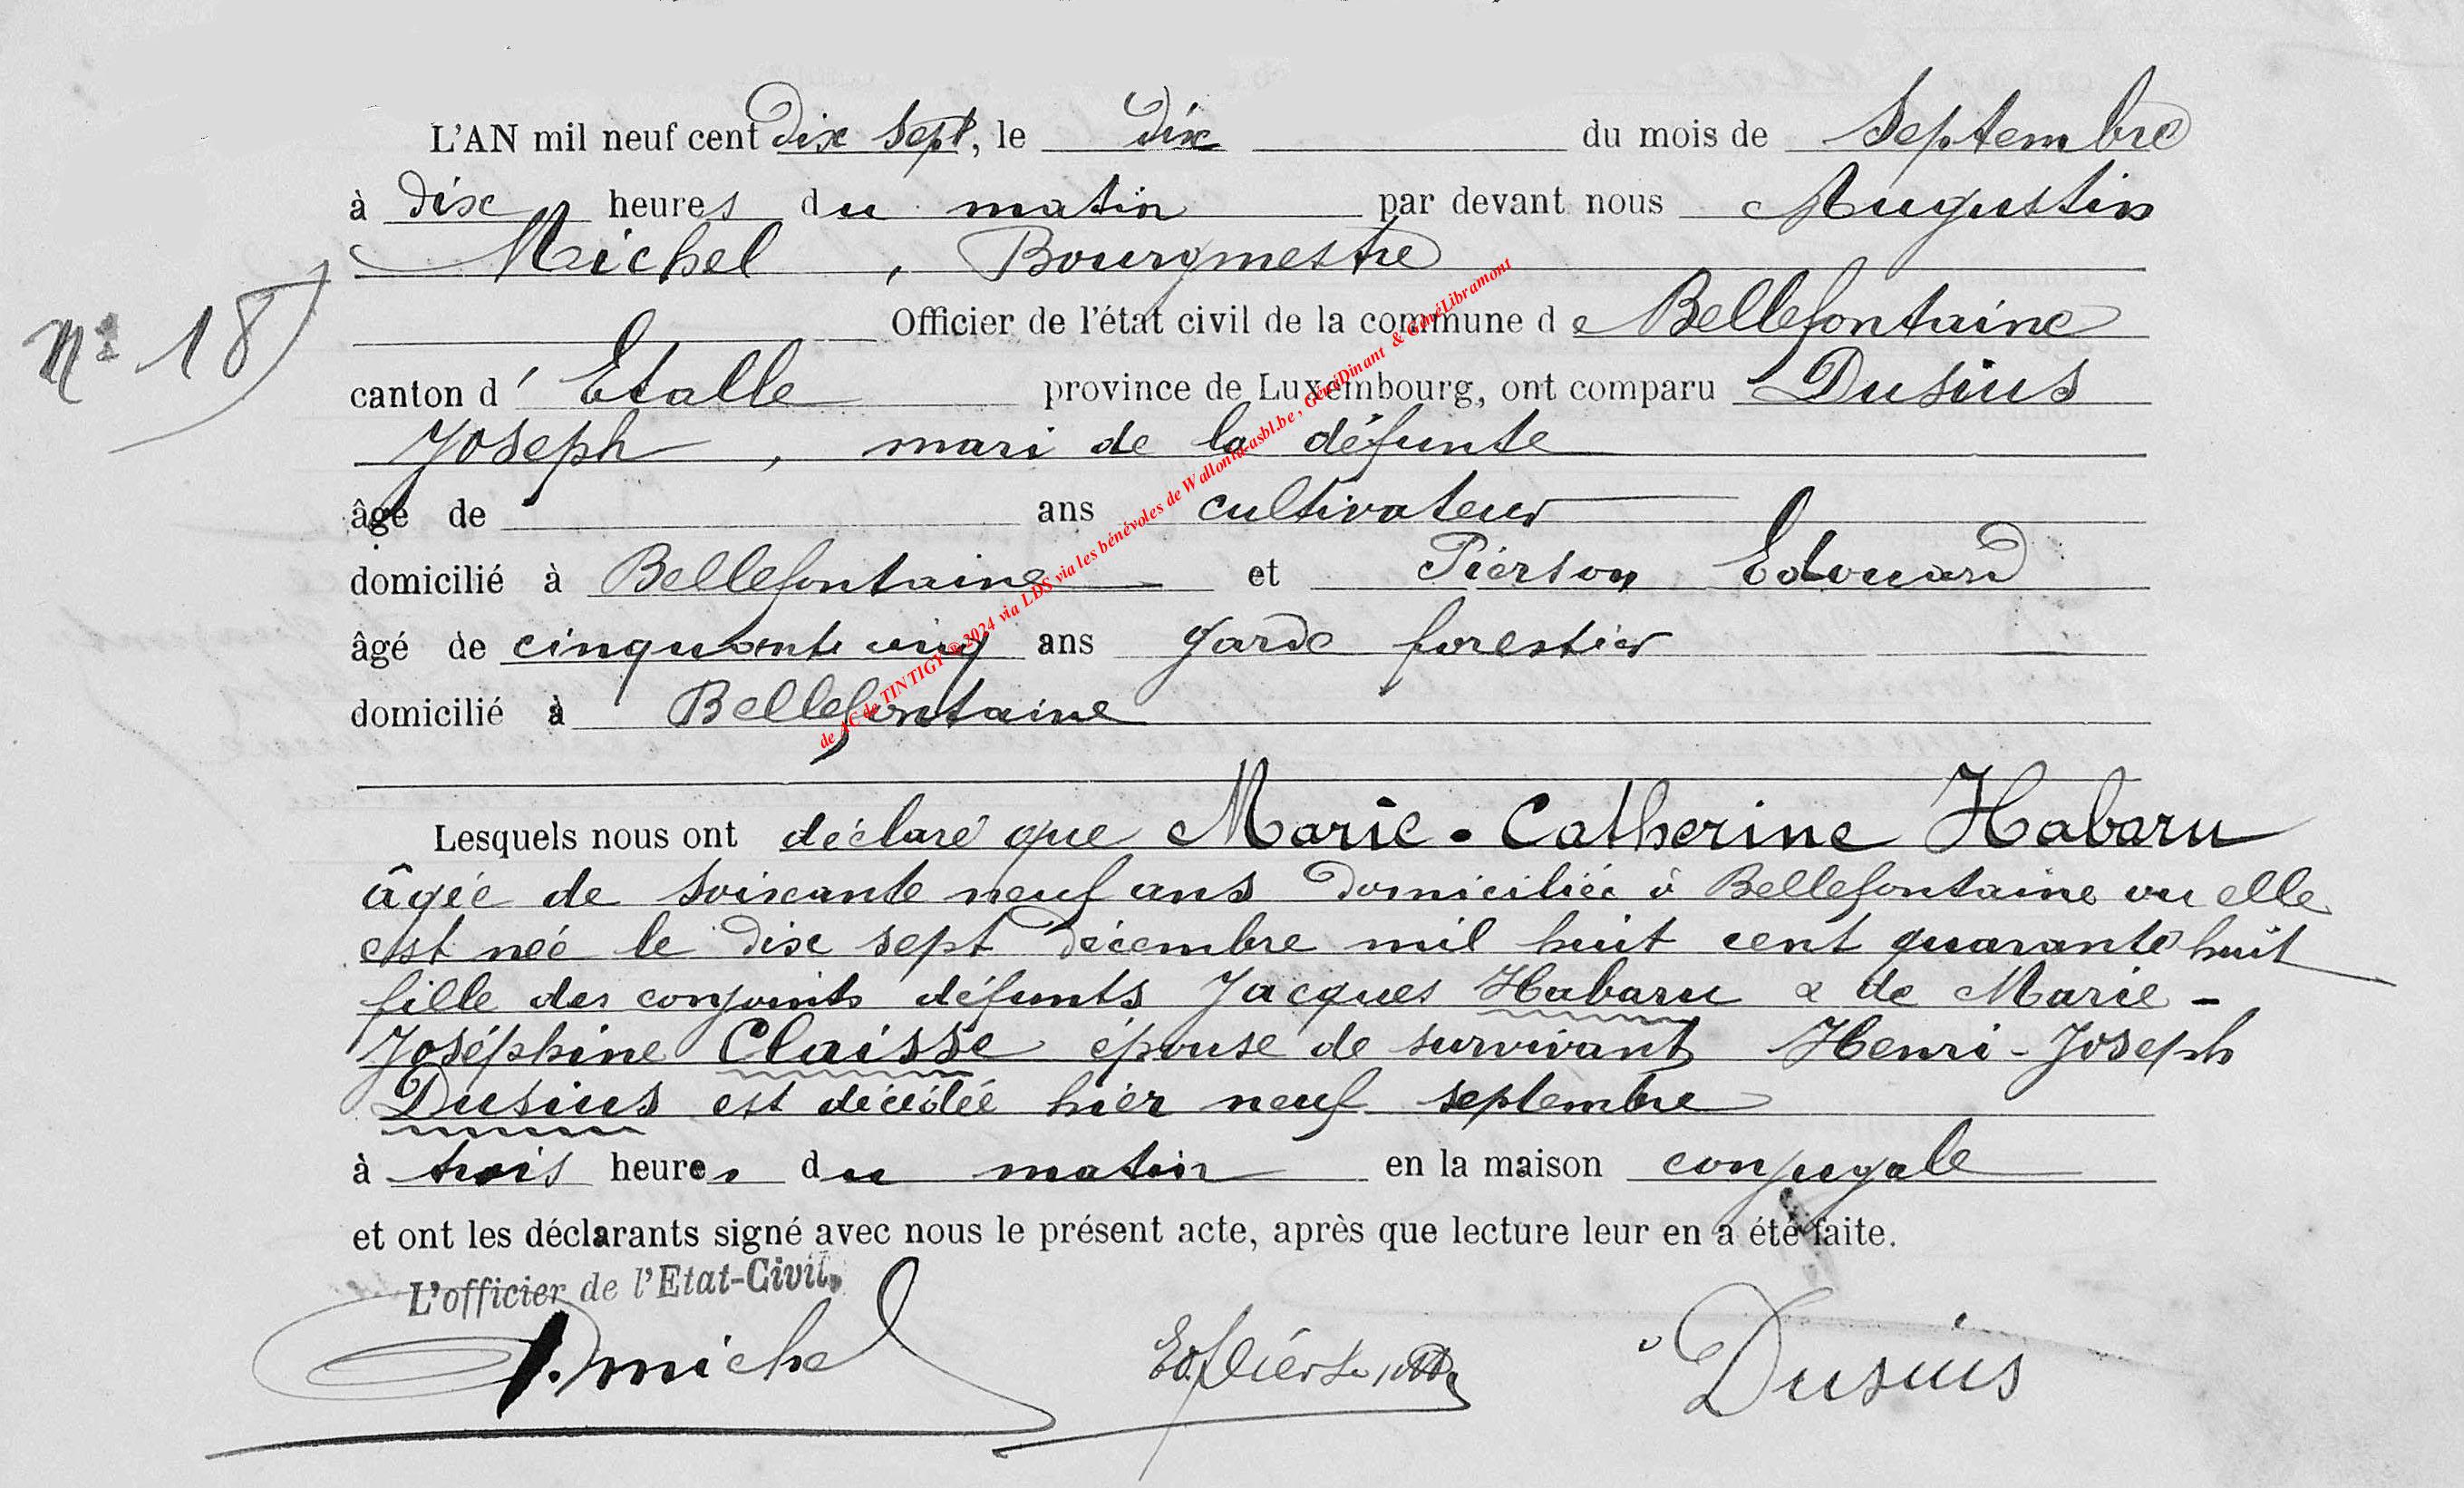 L'AN mil neuf cent dix sept, le dix du mois de Septembre
à dix heures du matin par devant nous Augustin
Michel, Bourgmestre
N° 18 Officier de l'état civil de la commune de Bellefontaine
canton d'Etalle province de Luxembourg, ont comparu Dusius
Joseph, mari de la défunte
âgé de ans cultivateur
domicilié à Bellefontaine et Pierson Edouard
âgé de cinquante cinq ans garde forestier
domicilié à Bellefontaine
Lesquels nous ont déclaré que Marie-Catherine Habaru
âgée de soixante neuf ans domiciliée à Bellefontaine ou elle
est née le dix sept décembre mil huit cent quarante huit
fille des conjoints défunts Jacques Habaru & de Marie-
Joséphine Claisse épouse de survivant Henri-Joseph
Dusius est décédée hier neuf septembre
à trois heures du matin en la maison conjugale
et ont les déclarants signé avec nous le présent acte, après que lecture leur en a été faite.
L'officier de l'Etat-Civil,
A. Michel Ed. Pierson Dusius
de AC de TINTIGY © 2024 via LDS via les bénévoles de Wallonia-asbl.be, GénéDinant & GénéLibramont